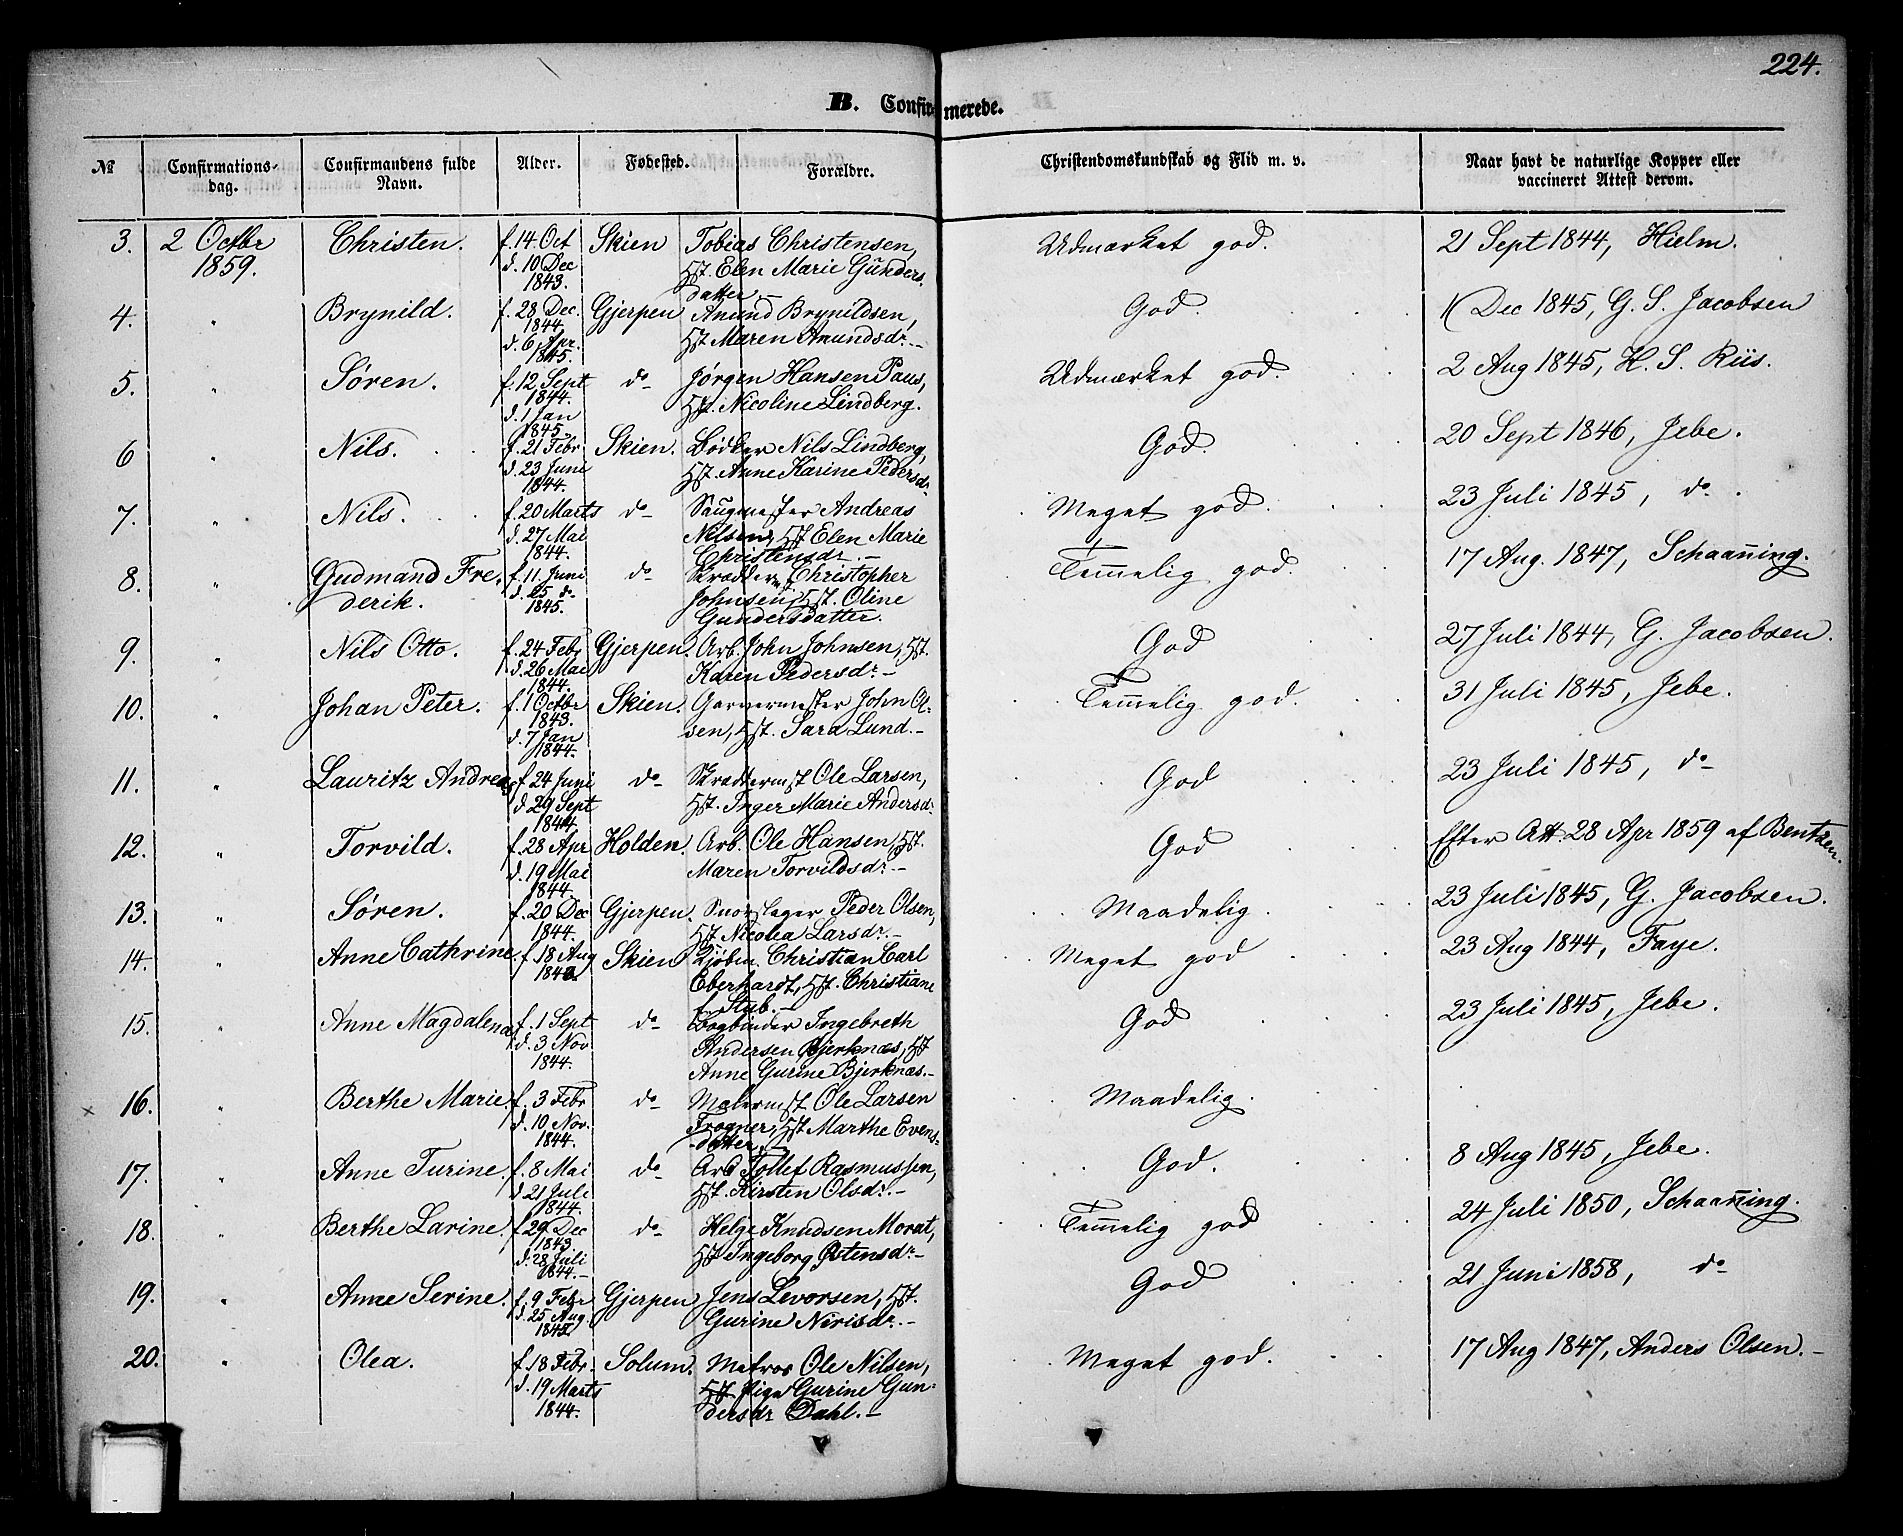 224.
B. Confirmerede.
№ Confirmations-dag. Confirmandens fulde Navn. Alder. Fødested. Forældre. Christendomskundskab og Flid m. v. Naar havt de naturlige Kopper eller vaccineret Attest derom.
3. 2 Octbr Christen. f. 14 Oct Skien Tobias Christensen, Udmærket god. 21 Sept 1844, Hielm.
1859. d. 10 Dec Hst. Elen Marie Gunders
1843. datter.
4. " Brynild. f. 28 Dec. Gjerpen Anund Brynildsen, God. Dec 1845, G. S. Jacobsen
1844 Hst Maren Amundsdr.
d. 6 Apr.
1845.
5. " Søren. f. 12 Sept do Jørgen Hansen Paus, Udmærket god. 2 Aug 1845, H. S. Riis.
1844. Hst. Nicoline Lindberg.
d. 1 Jan
1845.
6 " Nils. f. 21 Febr Skien. Bødker Nils Lindberg, God. 20 Sept 1846, Jebe.
d. 23 Juni Hst Anne Karine Pedersdr.
1844.
7. " Nils. f. 20 Marts do Saugmester Andreas Meget god. 23 Juli 1845, do.
d. 27 Mai Nilsen, Hst Elen Marie
1844. Christensdr.
8. " Gudmand Fre- f. 11. Juni do Christopher Temmelig god. 17 Aug. 1847, Schaanning.
derik. d. 25 do Johnsen, Hst. Oline
1845. Gundersdatter.
9. " Nils Otto. f. 24 Febr Gjerpen. Arb. John Johnsen, Hst. God 27 Juli 1844, G. Jacobsen.
d. 26 Mai Karen Pedersdr.
1844.
10. " Johan Peter. f. 1 Octbr Skien. Garvermester John Ol- Temmelig god. 31 Juli 1845, Jebe.
1843. sen, Hst. Sara Lund.
d. 7 Jan
1844.
11. " Lauritz Andreas f. 24 Juni do Skrædderm. Ole Larsen, God 23 Juli 1845, do
d. 29 Sept Hst. Inger Marie Andersdr.
1844.
12. " Torvild. f. 28 Apr Holden. Arb. Ole Hansen, Hst. God Efter Att. 28 Apr 1859 af Bentzen.
d. 19 Mai Maren Torvildsdr.
1844.
13. " Søren. f. 20 Dec Gjerpen. Peder Olsen, Maadelig. 23 Juli 1845, G. Jacobsen.
1844. Hst Nicolea Larsdr.
14. " Anne Cathrine f. 18 Aug Skien Kjøbm. Christian Carl Meget god 23 Aug 1844, Faye.
Eberhardt, Hst. Christiane
f. Stub.
15. " Anne Magdalena f. 1 Sept do Bogbinder Ingebreth God 23 Juli 1845, Jebe.
d. 3 Nov. Andersen Bjerknæs, Hst
1844. Anne Gurine Bjerknæs.
x 16. " Berthe Marie. f. 3 Febr do Malerm. Ole Larsen Maadelig.
d. 10 Nov. Frogner, Hst Marthe Evens-
1844. datter.
17. " Anne Turine f. 8 Mai do Arb Tollef Rasmussen, God. 8 Aug 1845, Jebe.
d. 21 Juli Hst. Kirsten Olsdr.
1844.
18. " Berthe Larine. f. 29 Dec do Helge Knudsen Morat, Temmelig god 24 Juli 1850, Schaanning.
1843 Hst Ingeborg Østensdr.
d. 28 Juli
1844.
19. " Anne Serine. f. 9 Febr Gjerpen Jens Levorsen, Hst. God 21 Juni 1858, do
d. 25 Aug. Gurine Nirisdr.
20. " Olea. f. 18 Febr. Solum. Matros Ole Nilsen, Meget god. 17 Aug 1847, Anders Olsen.
d. 19 Marts Hst Pige Gurine Gun-
1844. dersdr Dahl.